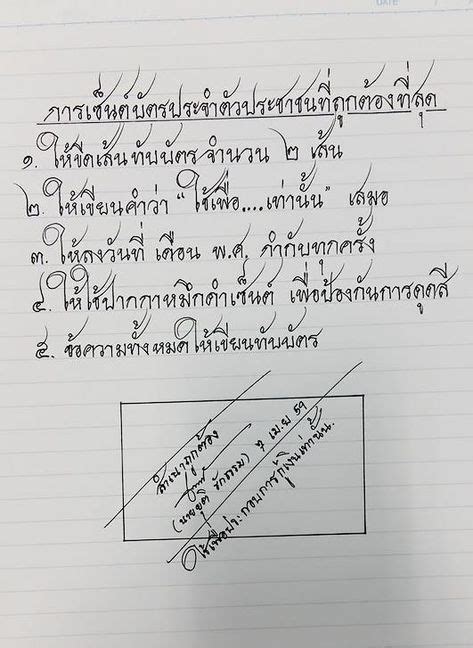 DATE
การเซ็นต์บัตรประจำตัวประชาชนที่ถูกต้องที่สุด
๑. ให้ขีดเส้นทับบัตรจำนวน ๒ เส้น
๒. ให้เขียนคำว่า "ใช้เพื่อ....เท่านั้น" เสมอ
๓. ให้ลงวันที่ เดือน พ.ศ. กำกับทุกครั้ง
๔. ให้ใช้ปากกาหมึกดำเซ็นต์ เพื่อป้องกันการดูดสี
๕. ข้อความทั้งหมดให้เขียนทับบัตร
สำเนาถูกต้อง
(นายยุติ รักธรรม) ๗ เม.ย ๕๑
ใช้เพื่อประกอบการกู้เงินเท่านั้น.